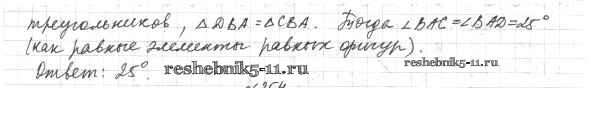 треугольников, △DBA = △CBA. Тогда ∠BAC = ∠BAD = 25°
(как равные элементы равных фигур).
reshebnik5-11.ru
Ответ: 25°. reshebnik5-11.ru